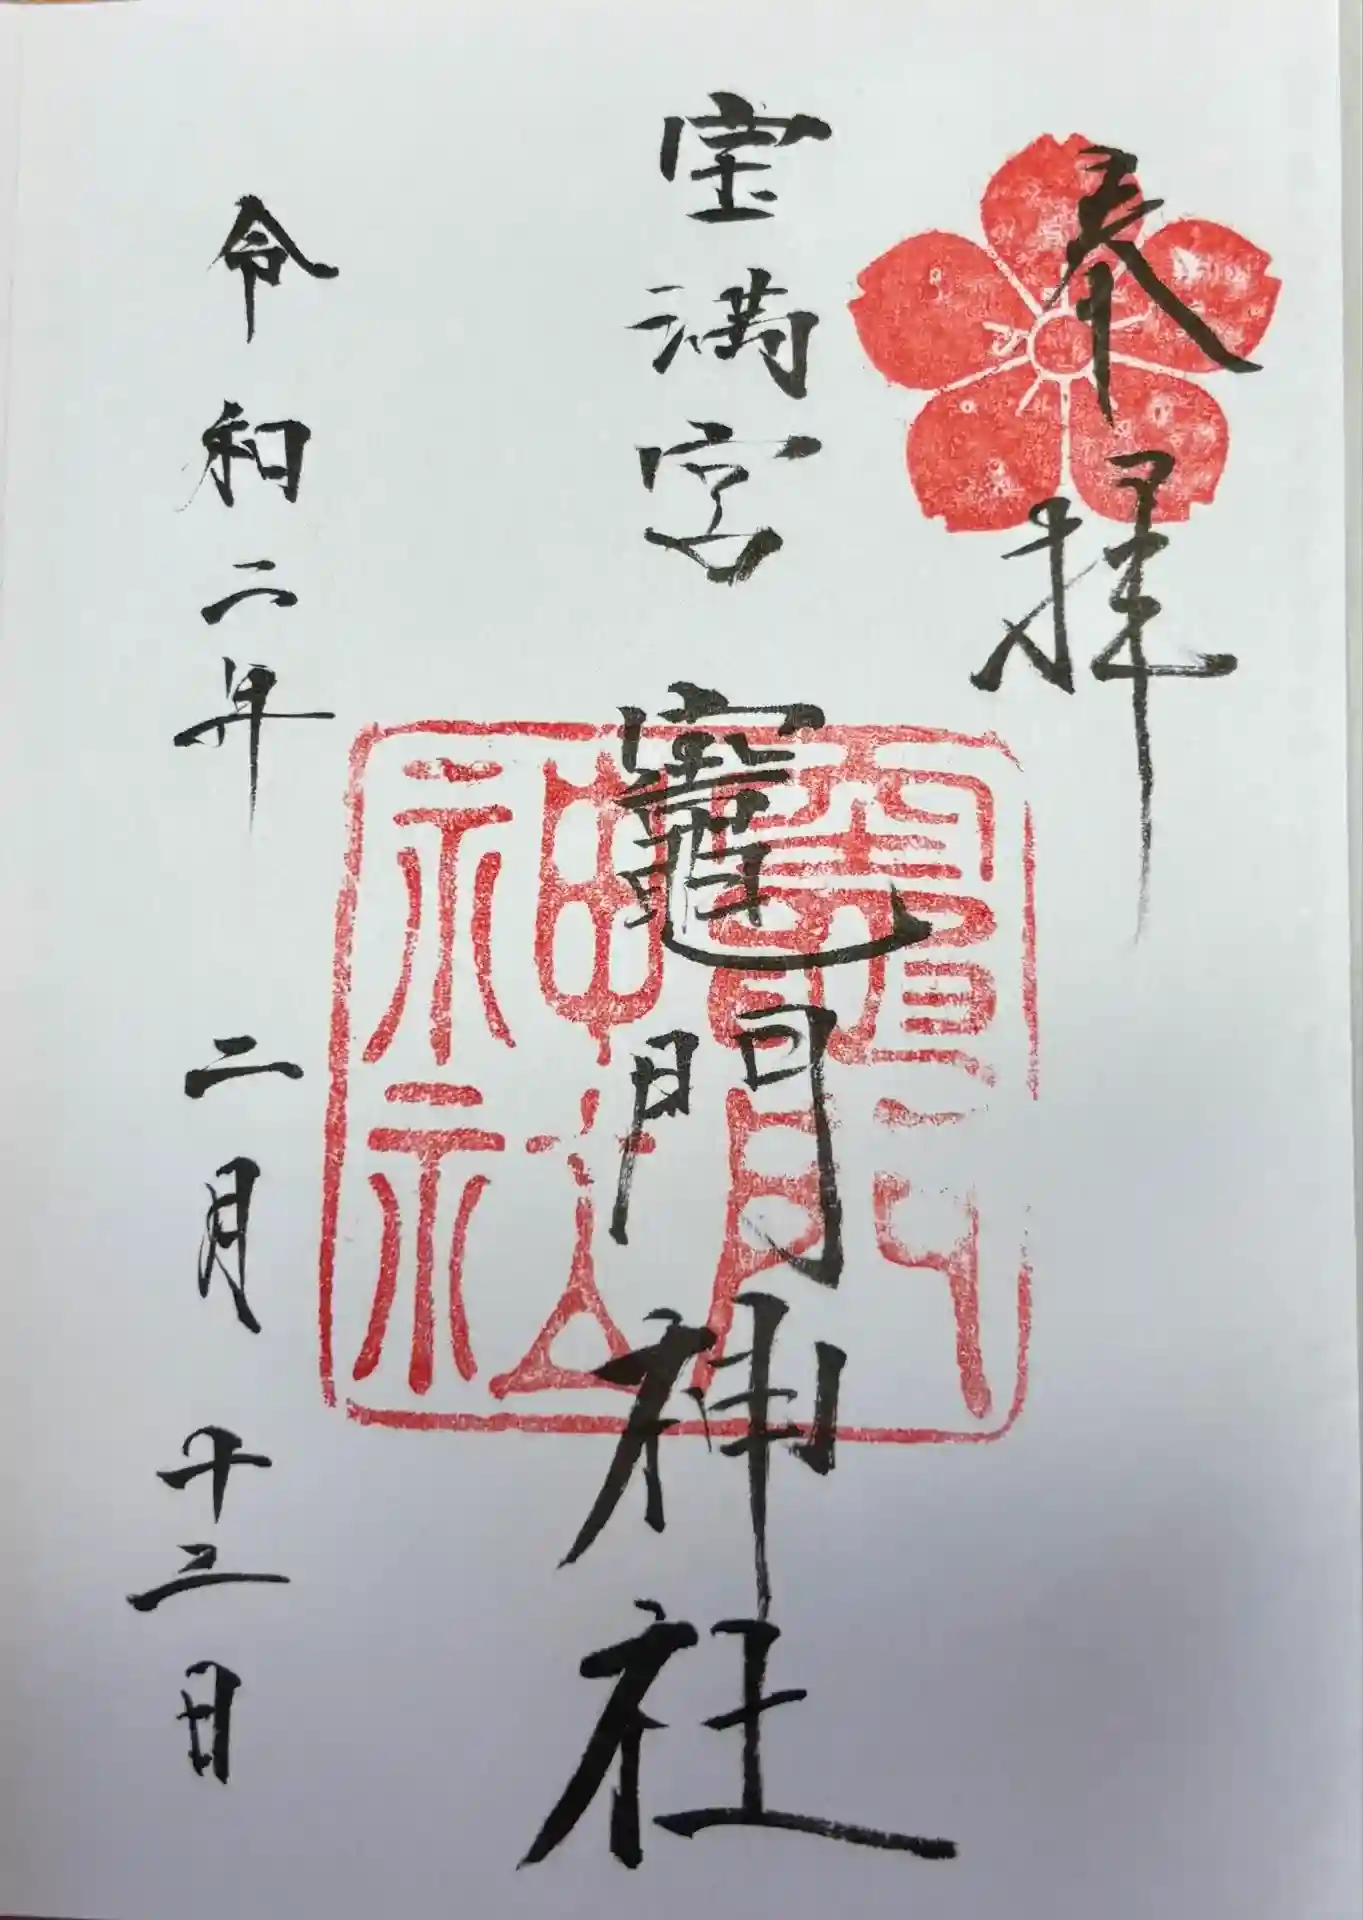 奉拝
宝満宮 竈門神社
令和二年 二月 十三日
竈門神社